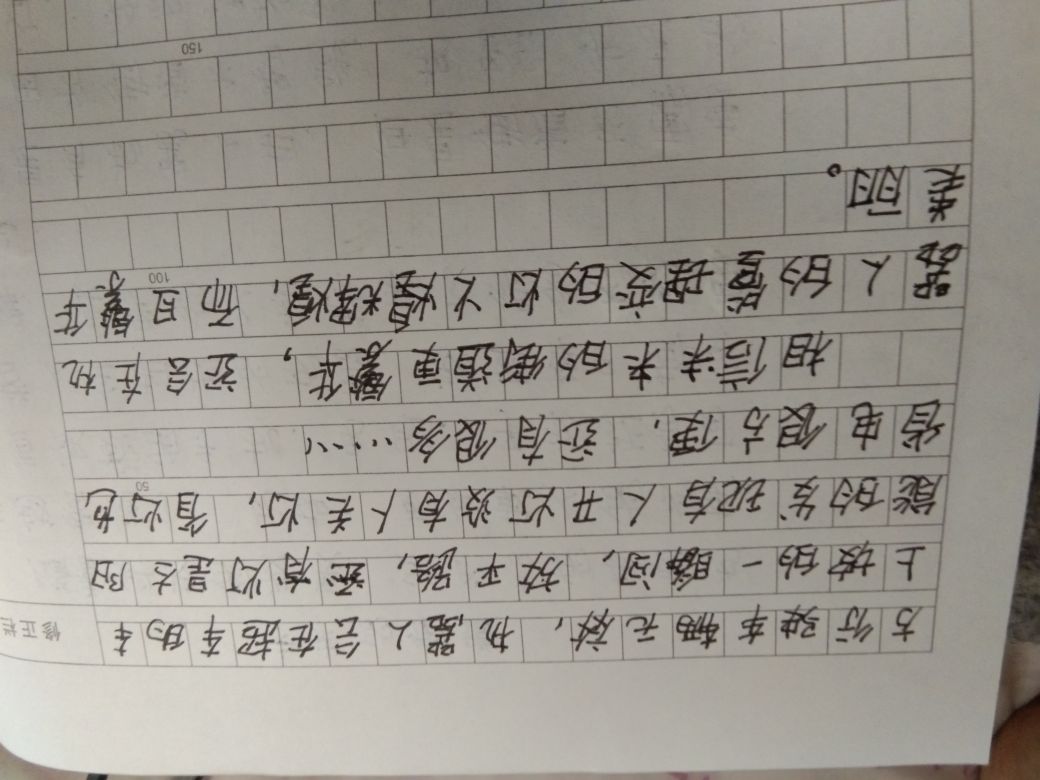 方行驶车辆无碍,机器人会在超车的车
上拔的一瞬间,放平路,还有灯是太阳
能的发现有人开灯没有人关灯,省灯也
50
省电很方便,还有很多……
相信未来的街道更繁华,还会在机
器人的管理交的灯火煌辉煌,而且繁华
100
美丽。
150
修正栏